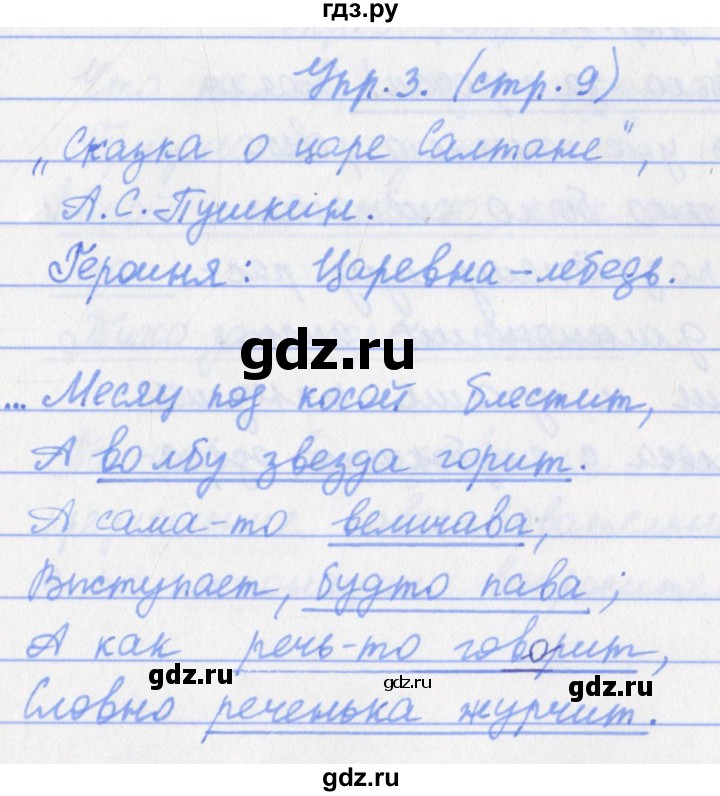 гдз.ру
Упр.3. (стр.9)
„Сказка о царе Салтане",
А.С.Пушкин.
Героиня: Царевна-лебедь.
gdz.ru
... Месяц под косой блестит,
А во лбу звезда горит.
А сама-то величава,
Выступает, будто пава;
А как речь-то говорит,
gdz.ru
gdz.ru
gdz.ru
Словно реченька журчит.
gdz.ru